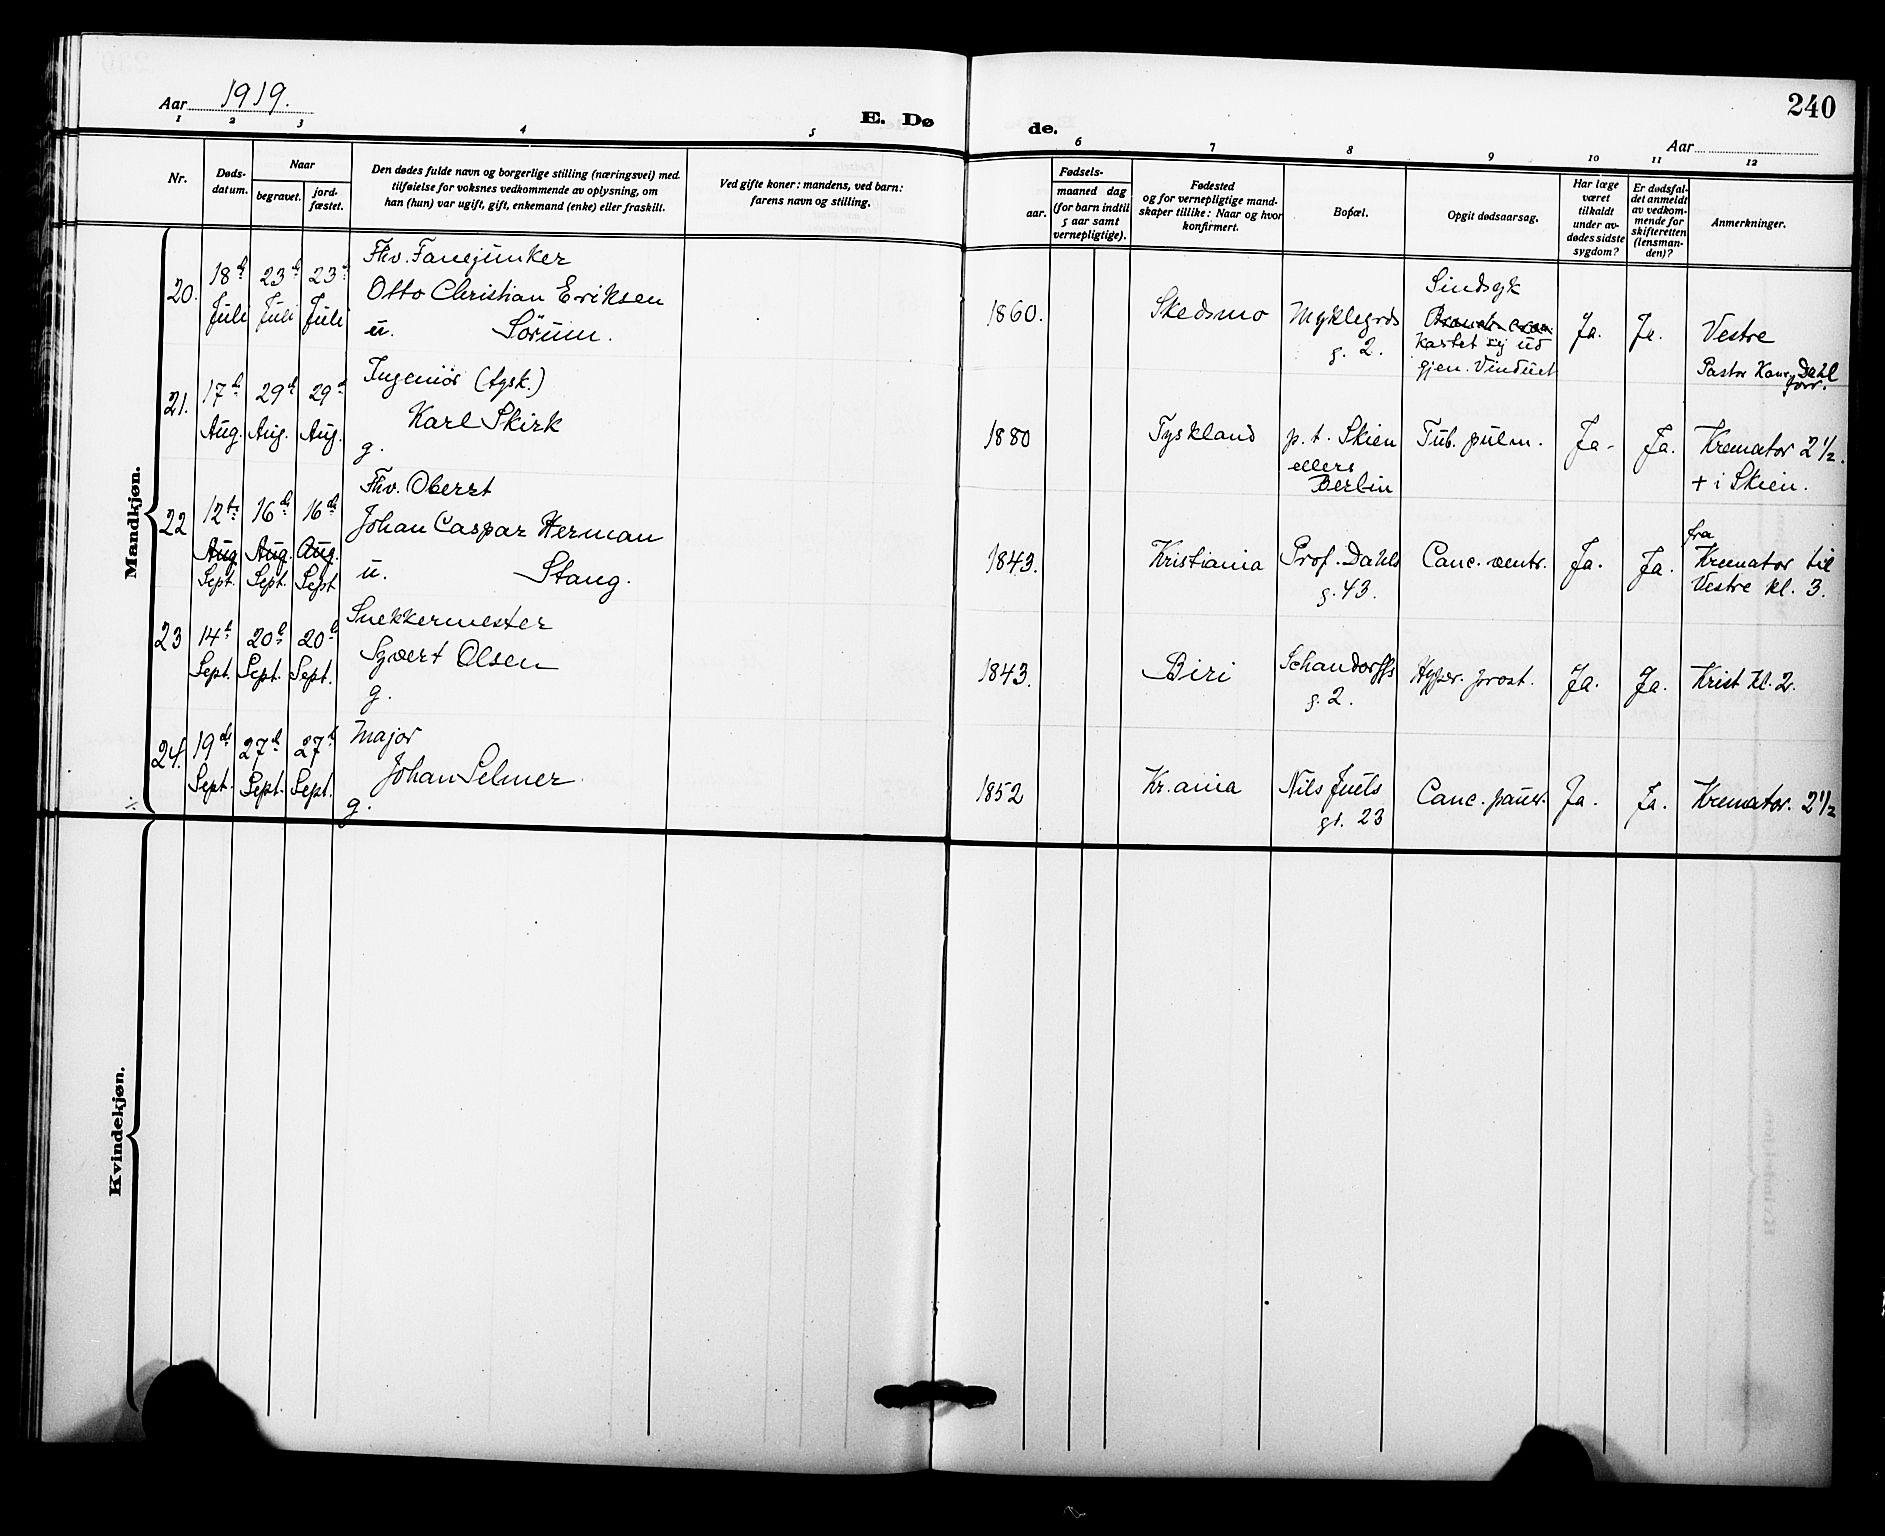 240
Aar 1919.
E. Døde.
Aar
1 2 3 4 5 6 7 8 9 10 11 12
Nr.
Døds-
datum.
Naar
begravet.
jord-
fæstet.
Den dødes fulde navn og borgerlige stilling (næringsvei) med
tilføielse for voksnes vedkommende av oplysning, om
han (hun) var ugift, gift, enkemand (enke) eller fraskilt.
Ved gifte koner: mandens, ved barn:
farens navn og stilling.
Fødsels-
aar.
maaned dag
(for barn indtil
5 aar samt
vernepligtige).
Fødested
og for vernepligtige mand-
skaper tillike: Naar og hvor
konfirmert.
Bopæl.
Opgit dødsaarsag.
Har læge
været
tilkaldt
under av-
dødes sidste
sygdom?
Er dødsfal-
det anmeldt
av vedkom-
mende for
skifteretten
(lensman-
den)?
Anmerkninger.
Mandkjøn.
20.
18de
Juli
23de
Juli
23de
Juli
Fhv. Fanejunker
Otto Christian Eriksen
u. Sørum.
1860.
Skedsmo
Myklegrds
g. 2.
Sindsyk
kastet sig ud
gjen. Vinduet
Ja.
Ja.
Vestre
Pastor Dahl
forr.
21.
17de
Aug.
29de
Aug.
29de
Aug.
Ingeniör (tysk.)
Karl Skirk
g.
1880
Tyskland
p. t. Skien
ellers
Berlin
Tub. pulm.
Ja-
Ja.
Kremator 2 1/2.
+ i Skien.
22
12te
Aug
Sept.
16de
Aug.
Sept.
16de
Aug.
Sept
Fhv. Oberst
Johan Caspar Herman
u. Stang.
1843.
Kristiania
Prof. Dahls
g. 43.
Canc. ventr.
Ja.
Ja.
fra
Kremator til
Vestre kl. 3.
23
14de
Sept.
20de
Sept.
20de
Sept.
Snekkermester
Syvert Olsen
g.
1843.
Biri
Schandorffs
g. 2.
Hyper. prost.
Ja.
Ja.
Krist Kl. 2.
24.
19de
Sept.
27de
Sept.
27de
Sept.
Major
Johan Selmer
g.
1852
Kr.ania
Nils Juels
gt. 23
Canc. pancr.
Ja.
Ja.
Kremator. 2 1/2
Kvindekjøn.